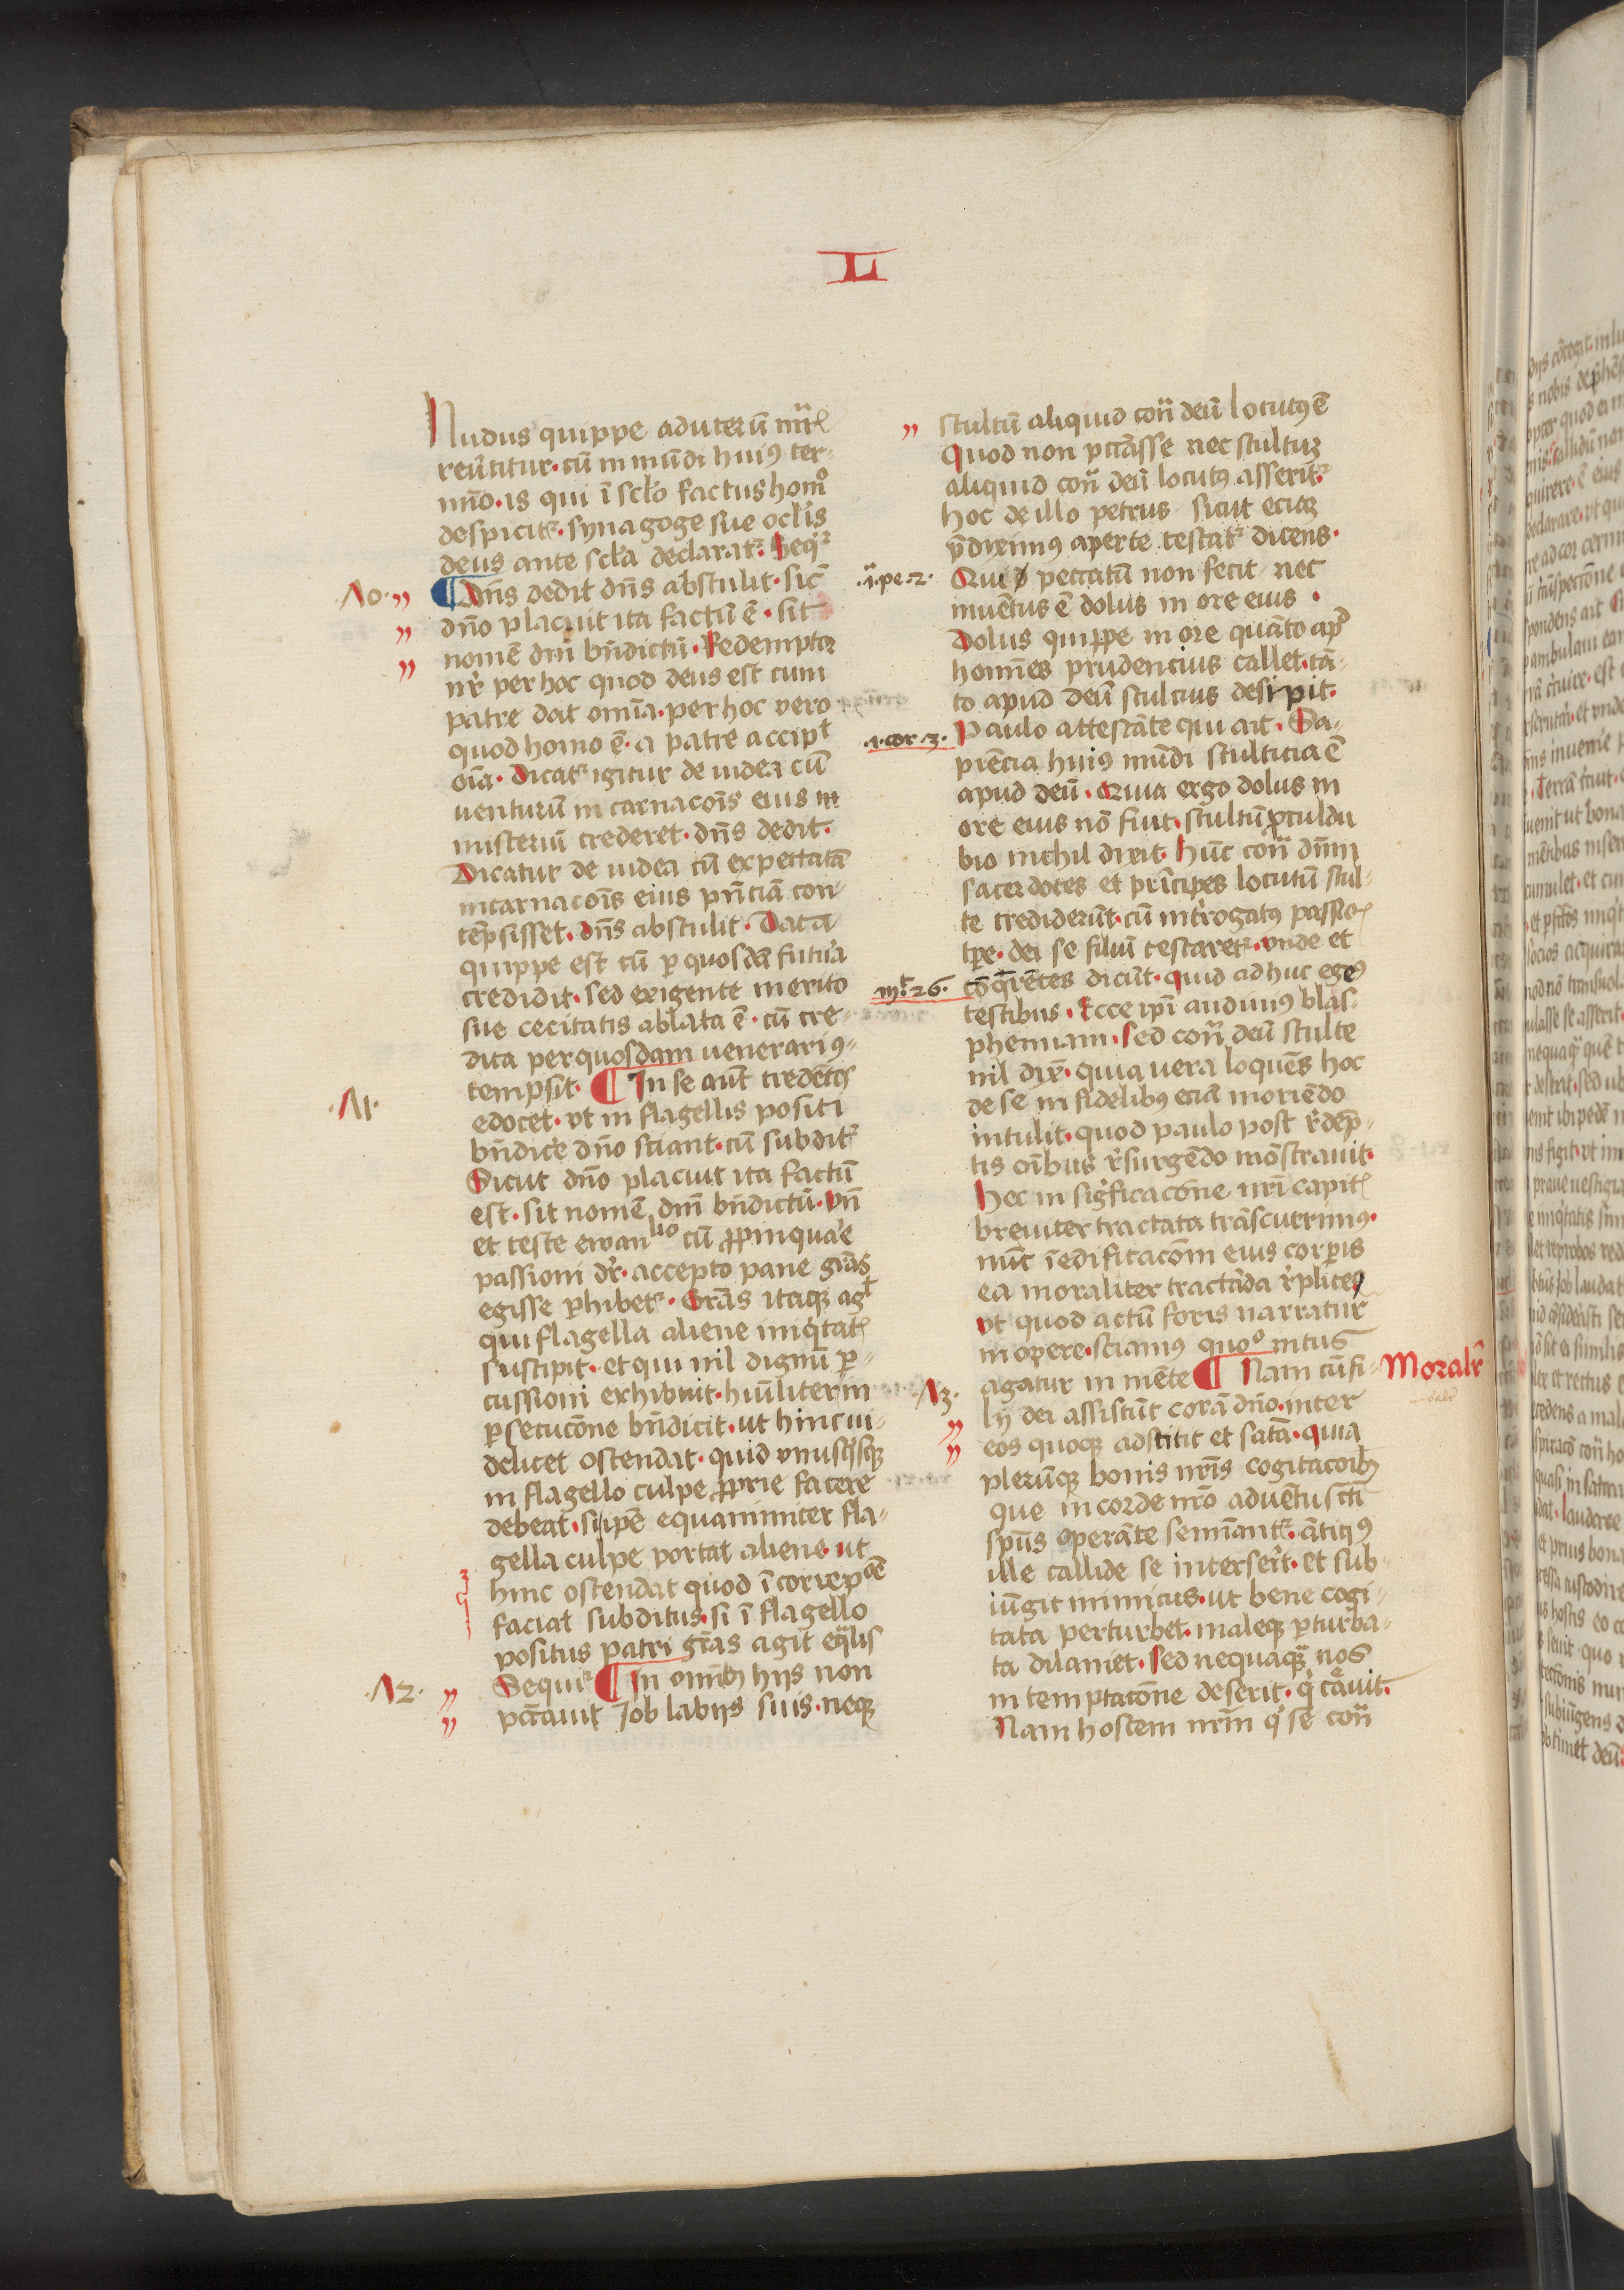 L
Nudus quippe ad uterū mr̄is
reūtitur · cū in mūdi huiꝰ ter-
mīo · is qui ī sclo factus homo
despicitr · synagoge sue oclis
deus ante scla declaratr · Seqr
·Λo· ¶ Dn̄s dedit dn̄s abstulit · sic̄
dn̄o placuit ita factū ē · sit
nomē dn̄i bn̄dictū · Redemptor
nr̄ per hoc quod deus est cum
patre dat om̄ia · per hoc vero
quod homo ē · a patre accipit
oīa · Dicatr igitur de iudea cū
venturū incarnacōis eius
misteriū crederet · dn̄s dedit ·
Dicatur de iudea cū expectatā
incarnacōis eius pn̄ciā con-
tēpsisset · dn̄s abstulit · Data
quippe est cū ꝑ quosdā futura
credidit · sed exigente merito
sue cecitatis ablata ē · cū cre-
dita per quosdam venerari 9-
tempsit ·
·Λ1· ¶ In se aūt credētes
edocet · vt in flagellis positi
bn̄dicere dn̄o sciant · cū subditr
Sicut dn̄o placuit ita factū
est · sit nomē dn̄i bn̄dictū · vn̄
et teste ewanlio cū ꝓpinquare
passioni dr̄ · accepto pane grās
egisse ꝑhibetr · Grās itaqꝫ agit
qui flagella aliene iniqitatis
suscipit · et qui nil dignū ꝑ-
cussioni exhibuit · hūiliter in
ꝑsecucōne bn̄dicit · ut hinc vi-
delicet ostendat · quid vnusqisqꝫ
in flagello culpe ꝓprie facere
debeat · si ipē equanimiter fla-
gella culpe portat aliene · ut
hinc ostendat quod ī correpcōe
faciat subditus · si ī flagello
positus patri grās agit eqalis
Sequir
·Λ2· ¶ In om̄ibꝫ hijs non
pctauit Job labijs suis · neqꝫ
stultū aliquid con̄ deū locutꝰ ē
Quod non pctāsse nec stultuꝫ
aliquid con̄ deū locutꝰ asseritr
hoc de illo petrus sicut eciaꝫ
p̄diximꝰ aperte testatr dicens ·
·i·pe·2· Qui peccatū non fecit nec
inuētus ē dolus in ore eius ·
Dolus quippe in ore quāto apd
homīes prudencius callet · tā-
to apud deū stulcius desipit ·
·1·cor·3· Paulo attestāte qui ait · Sa-
piēcia huiꝰ mūdi stulticia ē
apud deū · Quia ergo dolus in
ore eius nō fuit · stultū ꝓculdu
bio nichil dixit · Hūc con̄ dn̄m
sacerdotes et prīcipes locutū stul-
te crediderūt · cū int̄rogatꝰ passiois
tp̄e · dei se filiū testaretr · vnde et
mt·26· cōqrētes dicūt · quid adhuc egemꝰ
testibus · Ecce ip̄i audiuimꝰ blas-
phemiam · Sed con̄ deū stulte
nil dixit · quia vera loquēs hoc
de se infidelibꝰ eciā moriēdo
intulit · quod paulo post redēp-
tis oībus resurgēdo mōstrauit ·
Hec in significacōne nr̄i capitis
breuiter tractata trāscurrimꝰ ·
nūc ī edificacōem eius corporis
ea moraliter tractāda replicemꝰ
vt quod actū foris narratur
in opere · sciamꝰ quoo intus
agatur in mēte
·Λ3· ¶ Nam cū fi- Moralr
lij dei assistūt corā dn̄o · inter
eos quoqꝫ adstitit et satā · quia
plerūqꝫ bonis nr̄is cogitacōibꝫ
que in corde nr̄o aduētu sc̄ti
spūs operāte semīantr · ātiqꝰ
ille callide se interserit · et sub
iūgit inimicus · ut bene cogi-
tata perturbet · maleqꝫ ꝑturba-
ta dilaniet · Sed nequaqꝫ nos
in temptacōne deserit · qi creauit ·
Nam hostem nr̄m qi se con̄